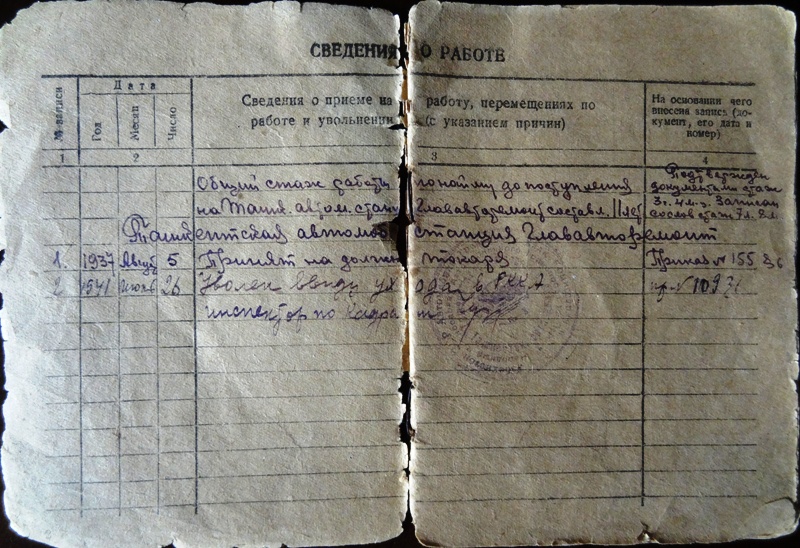 СВЕДЕНИЯ О РАБОТЕ
№ записи
Дата
Год
Месяц
Число
Сведения о приеме на работу, перемещениях по
работе и увольнении (с указанием причин)
На основании чего
внесена запись (до-
кумент, его дата и
номер)
1 2 3 4
Общий стаж работы по найму до поступления
на Таш. автом. стан. Глававторемонт составл. 11 лет
Подтвержден
документами стаж
3 г. 4 м. Записан
со слов стаж 7 л. 8 м.
Ташкентская автомоб. станция Глававторемонт
1. 1937 Август 5 Принят на должн. токаря Приказ № 155
2 1941 июня 26 Уволен ввиду ухода в РККА пр. № 109
инспектор по кадрам